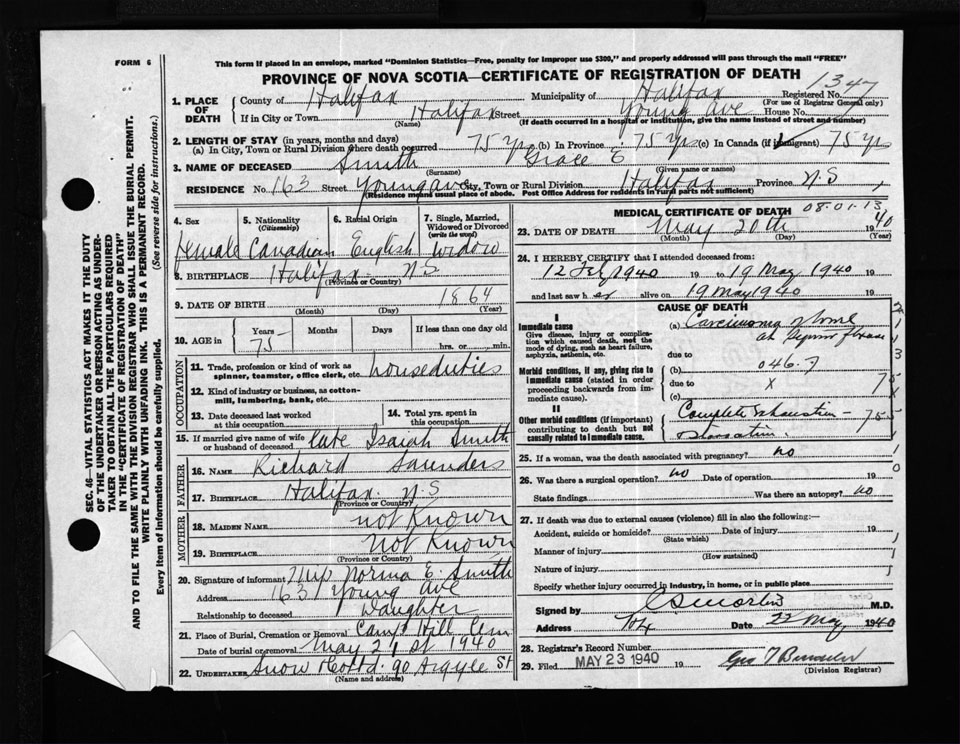 FORM 6
This form if placed in an envelope, marked "Dominion Statistics—Free, penalty for improper use $300," and properly addressed will pass through the mail "FREE"
PROVINCE OF NOVA SCOTIA—CERTIFICATE OF REGISTRATION OF DEATH
1347
1. PLACE OF DEATH
County of Halifax Municipality of Halifax Registered No.
(For use of Registrar General only)
If in City or Town Halifax Street Young Ave House No.
(Name) (If death occurred in a hospital or institution, give the name instead of street and number)
2. LENGTH OF STAY (in years, months and days)
(a) In City, Town or Rural Division where death occurred 75 yrs (b) In Province 75 yrs (c) In Canada (if immigrant) 75 yrs
3. NAME OF DECEASED Smith Grace E
(Surname) (Given name or names)
RESIDENCE No. 163 Street Young Ave City, Town or Rural Division Halifax Province N.S.
(Residence means usual place of abode. Post Office Address for residents in rural parts not sufficient)
4. Sex 5. Nationality (Citizenship) 6. Racial Origin 7. Single, Married, Widowed or Divorced (write the word)
Female Canadian English Widow
8. BIRTHPLACE Halifax N.S
(Province or Country)
9. DATE OF BIRTH 1864
(Month) (Day) (Year)
10. AGE in Years Months Days If less than one day old
75 hrs. or min.
OCCUPATION
11. Trade, profession or kind of work as spinner, teamster, office clerk, etc. houseduties
12. Kind of industry or business, as cotton-mill, lumbering, bank, etc.
13. Date deceased last worked at this occupation
14. Total yrs. spent in this occupation
15. If married give name of wife or husband of deceased late Isaiah Smith
FATHER
16. NAME Richard Saunders
17. BIRTHPLACE Halifax N.S
(Province or Country)
MOTHER
18. MAIDEN NAME not Known
19. BIRTHPLACE not Known
(Province or Country)
20. Signature of informant Norma E. Smith
Address 163 Young Ave
Relationship to deceased Daughter
21. Place of Burial, Cremation or Removal Camp Hill Cem
Date of burial or removal May 21st 1940
22. UNDERTAKER Snow & Co Ltd. 90 Argyle St
(Name and address)
MEDICAL CERTIFICATE OF DEATH 08-01-13
23. DATE OF DEATH May 20th 1940
(Month) (Day) (Year)
24. I HEREBY CERTIFY that I attended deceased from:
12 Feby 1940 19 to 19 May 1940 19
and last saw her alive on 19 May 1940 19
CAUSE OF DEATH
I
Immediate cause
Give disease, injury or complication which caused death, not the mode of dying, such as heart failure, asphyxia, asthenia, etc.
(a) Carcinoma
due to
Morbid conditions, if any, giving rise to immediate cause (stated in order proceeding backwards from immediate cause).
(b) 046.7
due to X
(c)
II
Other morbid conditions (if important) contributing to death but not causally related to immediate cause.
Complete Exhaustion
25. If a woman, was the death associated with pregnancy? no
26. Was there a surgical operation? no Date of operation 19
State findings Was there an autopsy? no
27. If death was due to external causes (violence) fill in also the following:—
Accident, suicide or homicide? Date of injury 19
(State which)
Manner of injury
(How sustained)
Nature of injury
Specify whether injury occurred in industry, in home, or in public place
Signed by M.D.
Address Date 22 May 1940
28. Registrar's Record Number
29. Filed MAY 23 1940 19
(Division Registrar)
SEC. 46—VITAL STATISTICS ACT MAKES IT THE DUTY
OF THE UNDERTAKER OR PERSON ACTING AS UNDER-
TAKER TO OBTAIN ALL THE PARTICULARS REQUIRED
IN THE "CERTIFICATE OF REGISTRATION OF DEATH"
AND TO FILE THE SAME WITH THE DIVISION REGISTRAR WHO SHALL ISSUE THE BURIAL PERMIT.
WRITE PLAINLY WITH UNFADING INK. THIS IS A PERMANENT RECORD.
Every item of information should be carefully supplied. (See reverse side for instructions.)